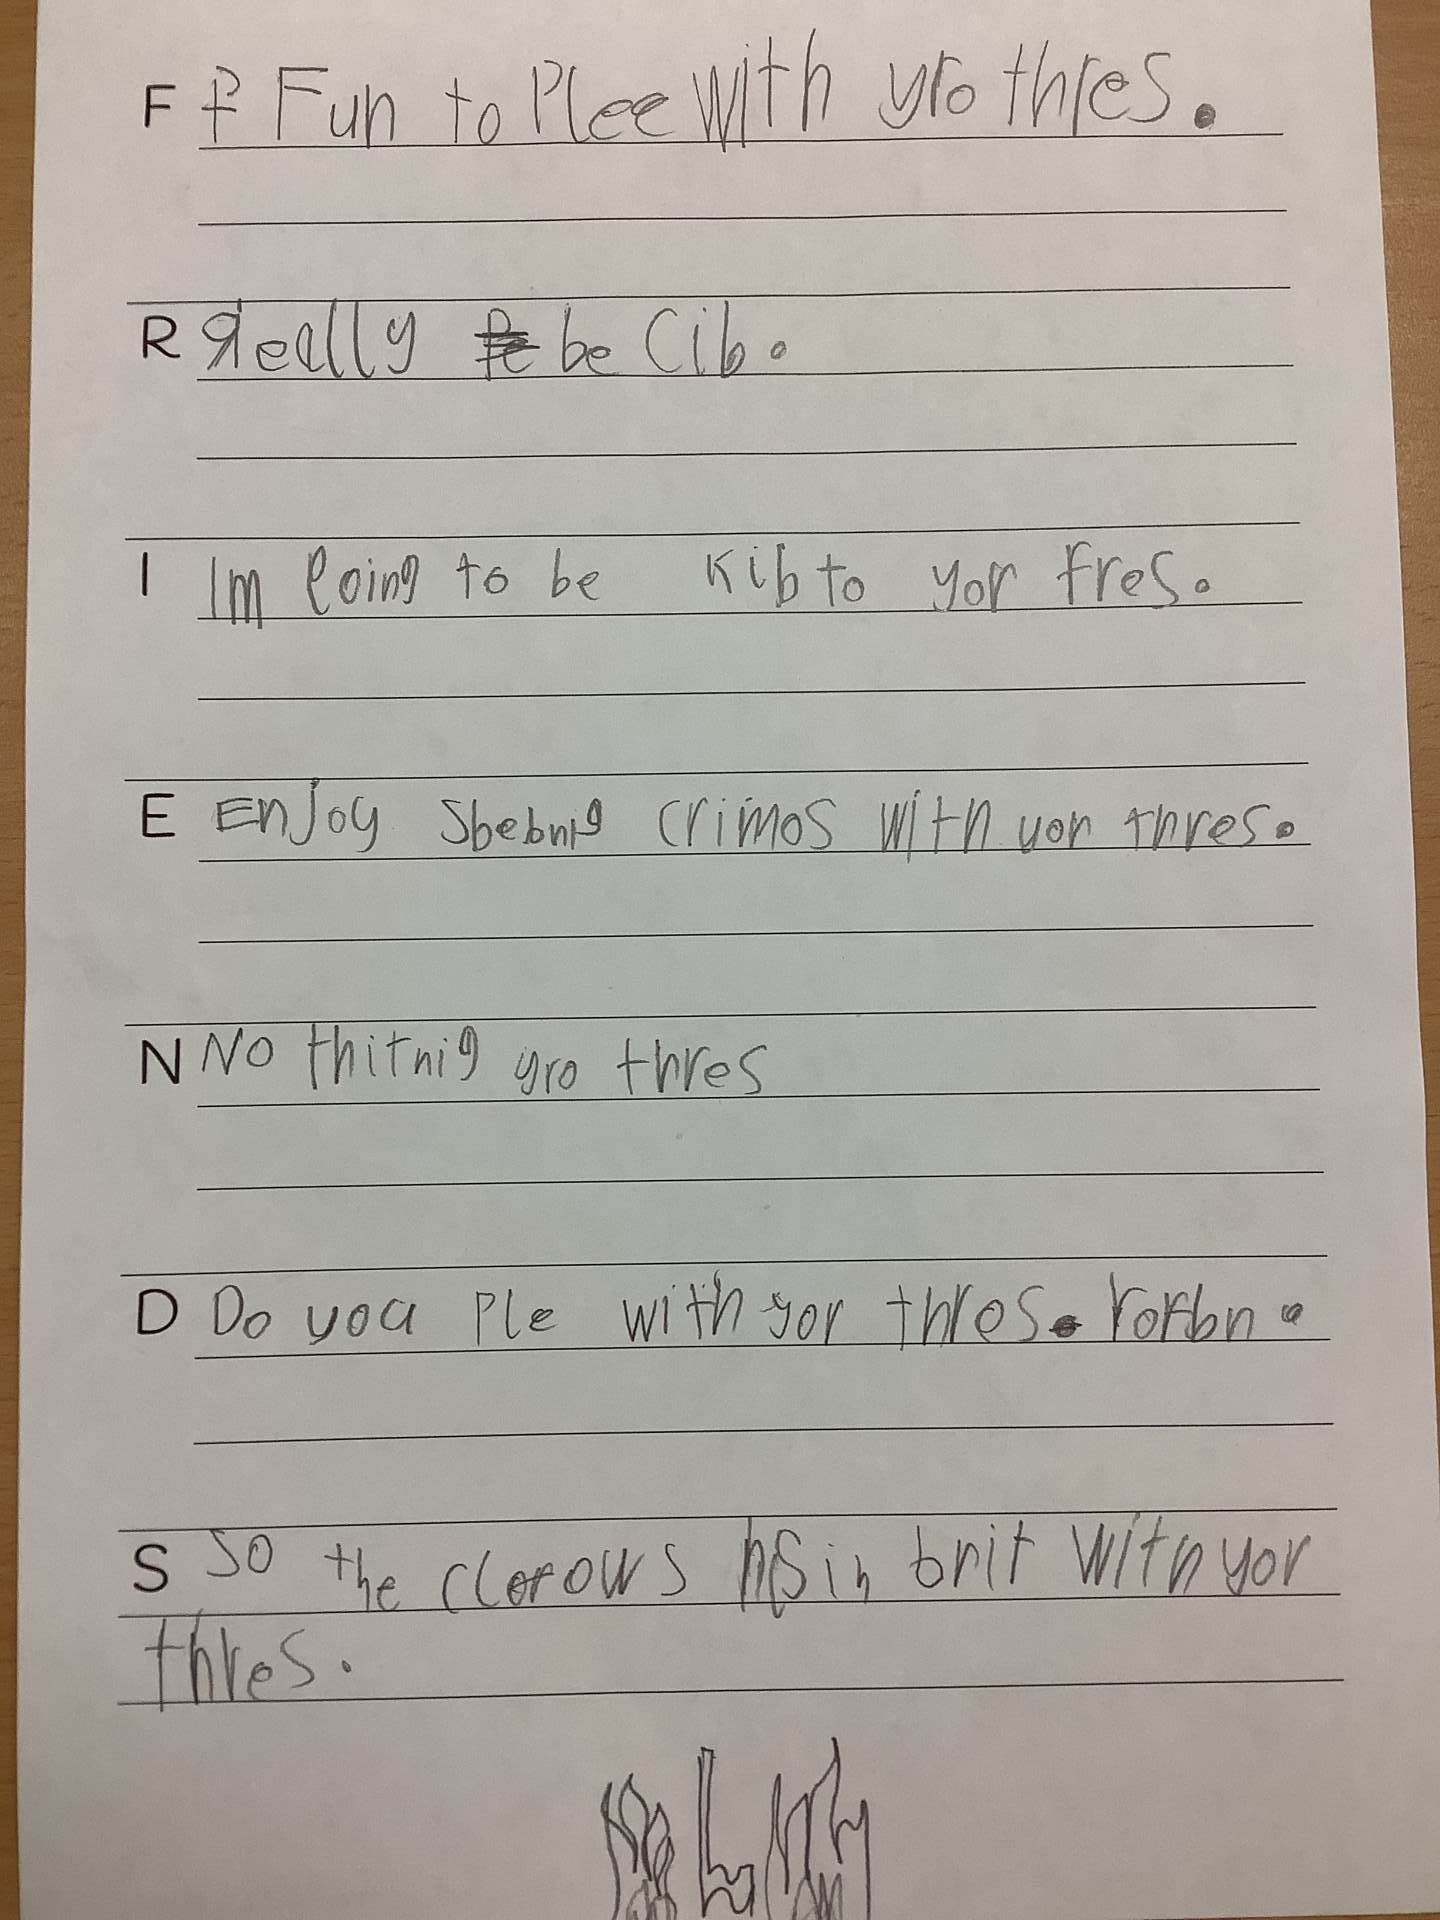 F f Fun to Plee with yro thres.
R Really be Cib.
I Im going to be Kib to yor fres.
E Enjoy Sbebnig crimos with yor thres.
N No thitnig yro thres
D Do you Ple with yor thres. rorbn.
S So the clorows in brit with yor
thres.